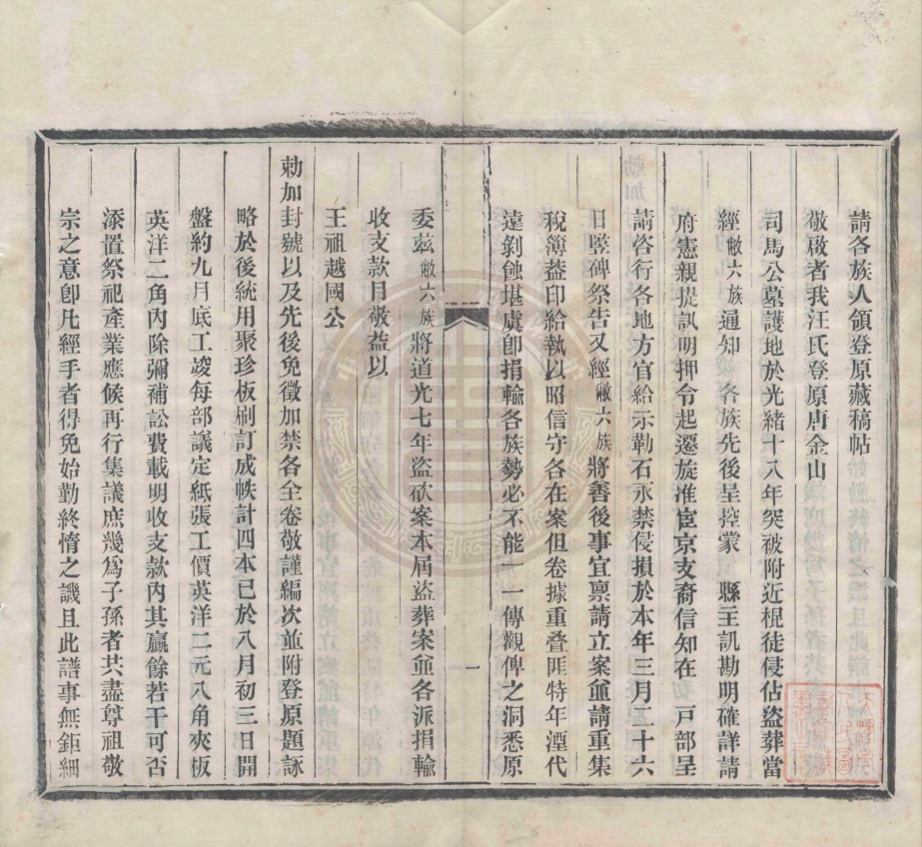 請各族人領登原藏稿帖
敬啟者我汪氏登原唐金山
司馬公墓護地於光緒十八年突被附近棍徒侵佔盜葬當
經敝六族通知 各族先後呈控蒙 縣主訊勘明確詳請
府憲親提訊明押令起遷旋淮宦京支裔信知在 戸部呈
請咨行各地方官給示勒石永禁侵損於本年三月二十六
日竪碑祭告又經敝六族將善後事宜禀請立案並請重集
稅簿葢印給執以昭信守各在案但卷據重叠匪特年湮代
遠剝蝕堪虞卽捐輸各族勢必不能一一傳觀俾之洞悉原
一
委茲敝六族將道光七年盜砍案本屆盜葬案並各派捐輸
收支款目敬葢以
王祖越國公
勅加封號以及先後免徵加禁各全卷敬謹編次並附登原題詠
略於後統用聚珍板刷訂成帙計四本已於八月初三日開
盤約九月底工竣每部議定紙張工價英洋二元八角夾板
英洋二角內除彌補訟費載明收支款內其贏餘若干可否
添置祭祀產業應候再行集議庶幾爲子孫者共盡尊祖敬
宗之意卽凡經手者得免始勤終惰之譏且此譜事無鉅細